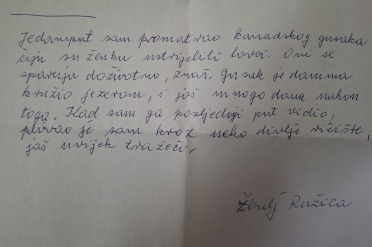 Jedamput sam promatrao kanadskog gusaka
čiju su ženku ustrijelili lovci. Oni se
sparuju doživotno, znaš. Gusak je danima
kružio jezerom, i još mnogo dana nakon
toga. Kad sam ga posljednji put vidio,
plovao je sam kroz neko divlje rižište,
još uvijek tražeći,
Ružica